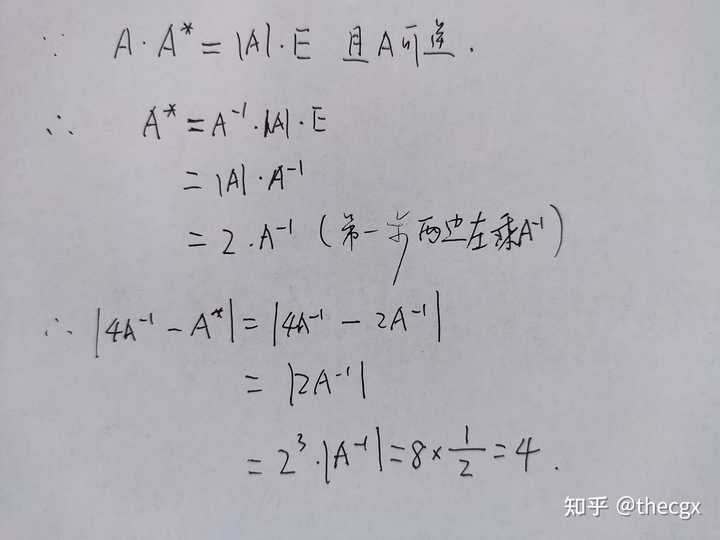 ∵ A·A* = |A|·E 且A可逆.
∴ A* = A⁻¹·|A|·E
= |A|·A⁻¹
= 2·A⁻¹ (第一步两边左乘A⁻¹)
∴ |4A⁻¹ - A*| = |4A⁻¹ - 2A⁻¹|
= |2A⁻¹|
= 2³·|A⁻¹| = 8×1/2 = 4.
知乎 @thecgx